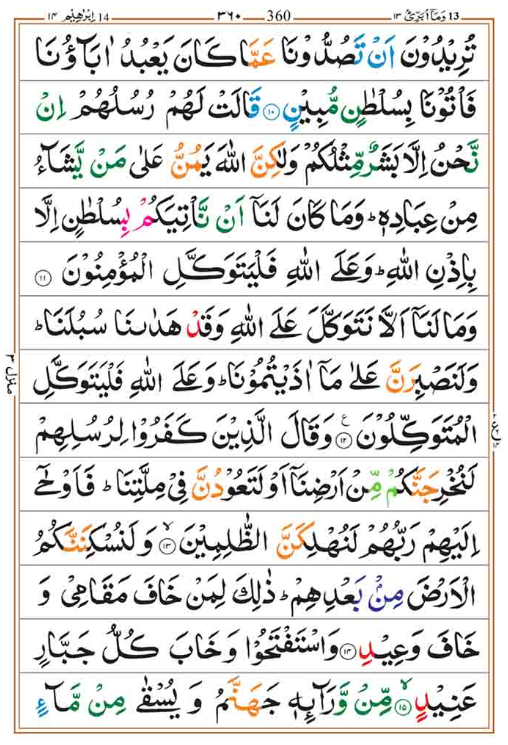 ١٤ اِبْرٰهِيْم 14 ٣٦٠ 360 وَمَآ اُبَرِّئُ ١٣ 13
تُرِيْدُوْنَ اَنْ تَصُدُّوْنَا عَمَّا كَانَ يَعْبُدُ اٰبَآؤُنَا
فَاْتُوْنَا بِسُلْطٰنٍ مُّبِيْنٍ ۝۱۰ قَالَتْ لَهُمْ رُسُلُهُمْ اِنْ
نَّحْنُ اِلَّا بَشَرٌ مِّثْلُكُمْ وَلٰكِنَّ اللّٰهَ يَمُنُّ عَلٰى مَنْ يَّشَآءُ
مِنْ عِبَادِهٖ ؕ وَمَا كَانَ لَنَآ اَنْ نَّاْتِيَكُمْ بِسُلْطٰنٍ اِلَّا
بِاِذْنِ اللّٰهِ ؕ وَعَلَى اللّٰهِ فَلْيَتَوَكَّلِ الْمُؤْمِنُوْنَ ۝۱۱
وَمَا لَنَآ اَلَّا نَتَوَكَّلَ عَلَى اللّٰهِ وَقَدْ هَدٰىنَا سُبُلَنَا ؕ
وَلَنَصْبِرَنَّ عَلٰى مَآ اٰذَيْتُمُوْنَا ؕ وَعَلَى اللّٰهِ فَلْيَتَوَكَّلِ
الْمُتَوَكِّلُوْنَ ۝۱۲ۧ وَقَالَ الَّذِيْنَ كَفَرُوْا لِرُسُلِهِمْ
لَنُخْرِجَنَّكُمْ مِّنْ اَرْضِنَآ اَوْ لَتَعُوْدُنَّ فِيْ مِلَّتِنَا ؕ فَاَوْحٰٓى
اِلَيْهِمْ رَبُّهُمْ لَنُهْلِكَنَّ الظّٰلِمِيْنَ ۝۱۳ۙ وَلَنُسْكِنَنَّكُمُ
الْاَرْضَ مِنْۢ بَعْدِهِمْ ؕ ذٰلِكَ لِمَنْ خَافَ مَقَامِيْ وَ
خَافَ وَعِيْدِ ۝۱۴ وَاسْتَفْتَحُوْا وَخَابَ كُلُّ جَبَّارٍ
عَنِيْدٍ ۝۱۵ۙ مِّنْ وَّرَآئِهٖ جَهَنَّمُ وَيُسْقٰى مِنْ مَّآءٍ
منزل ٣